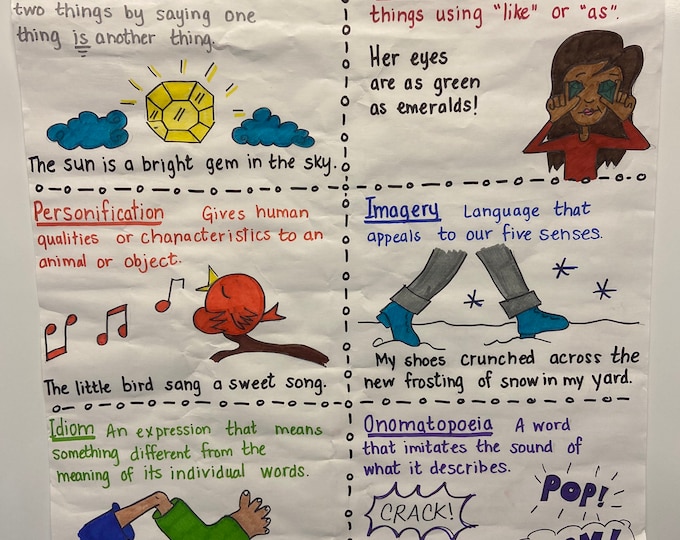 two things by saying one
thing is another thing.
The sun is a bright gem in the sky.
things using "like" or "as".
Her eyes
are as green
as emeralds!
Personification Gives human
qualities or characteristics to an
animal or object.
The little bird sang a sweet song.
Imagery Language that
appeals to our five senses.
My shoes crunched across the
new frosting of snow in my yard.
Idiom An expression that means
something different from the
meaning of its individual words.
Onomatopoeia A word
that imitates the sound of
what it describes.
CRACK!
POP!